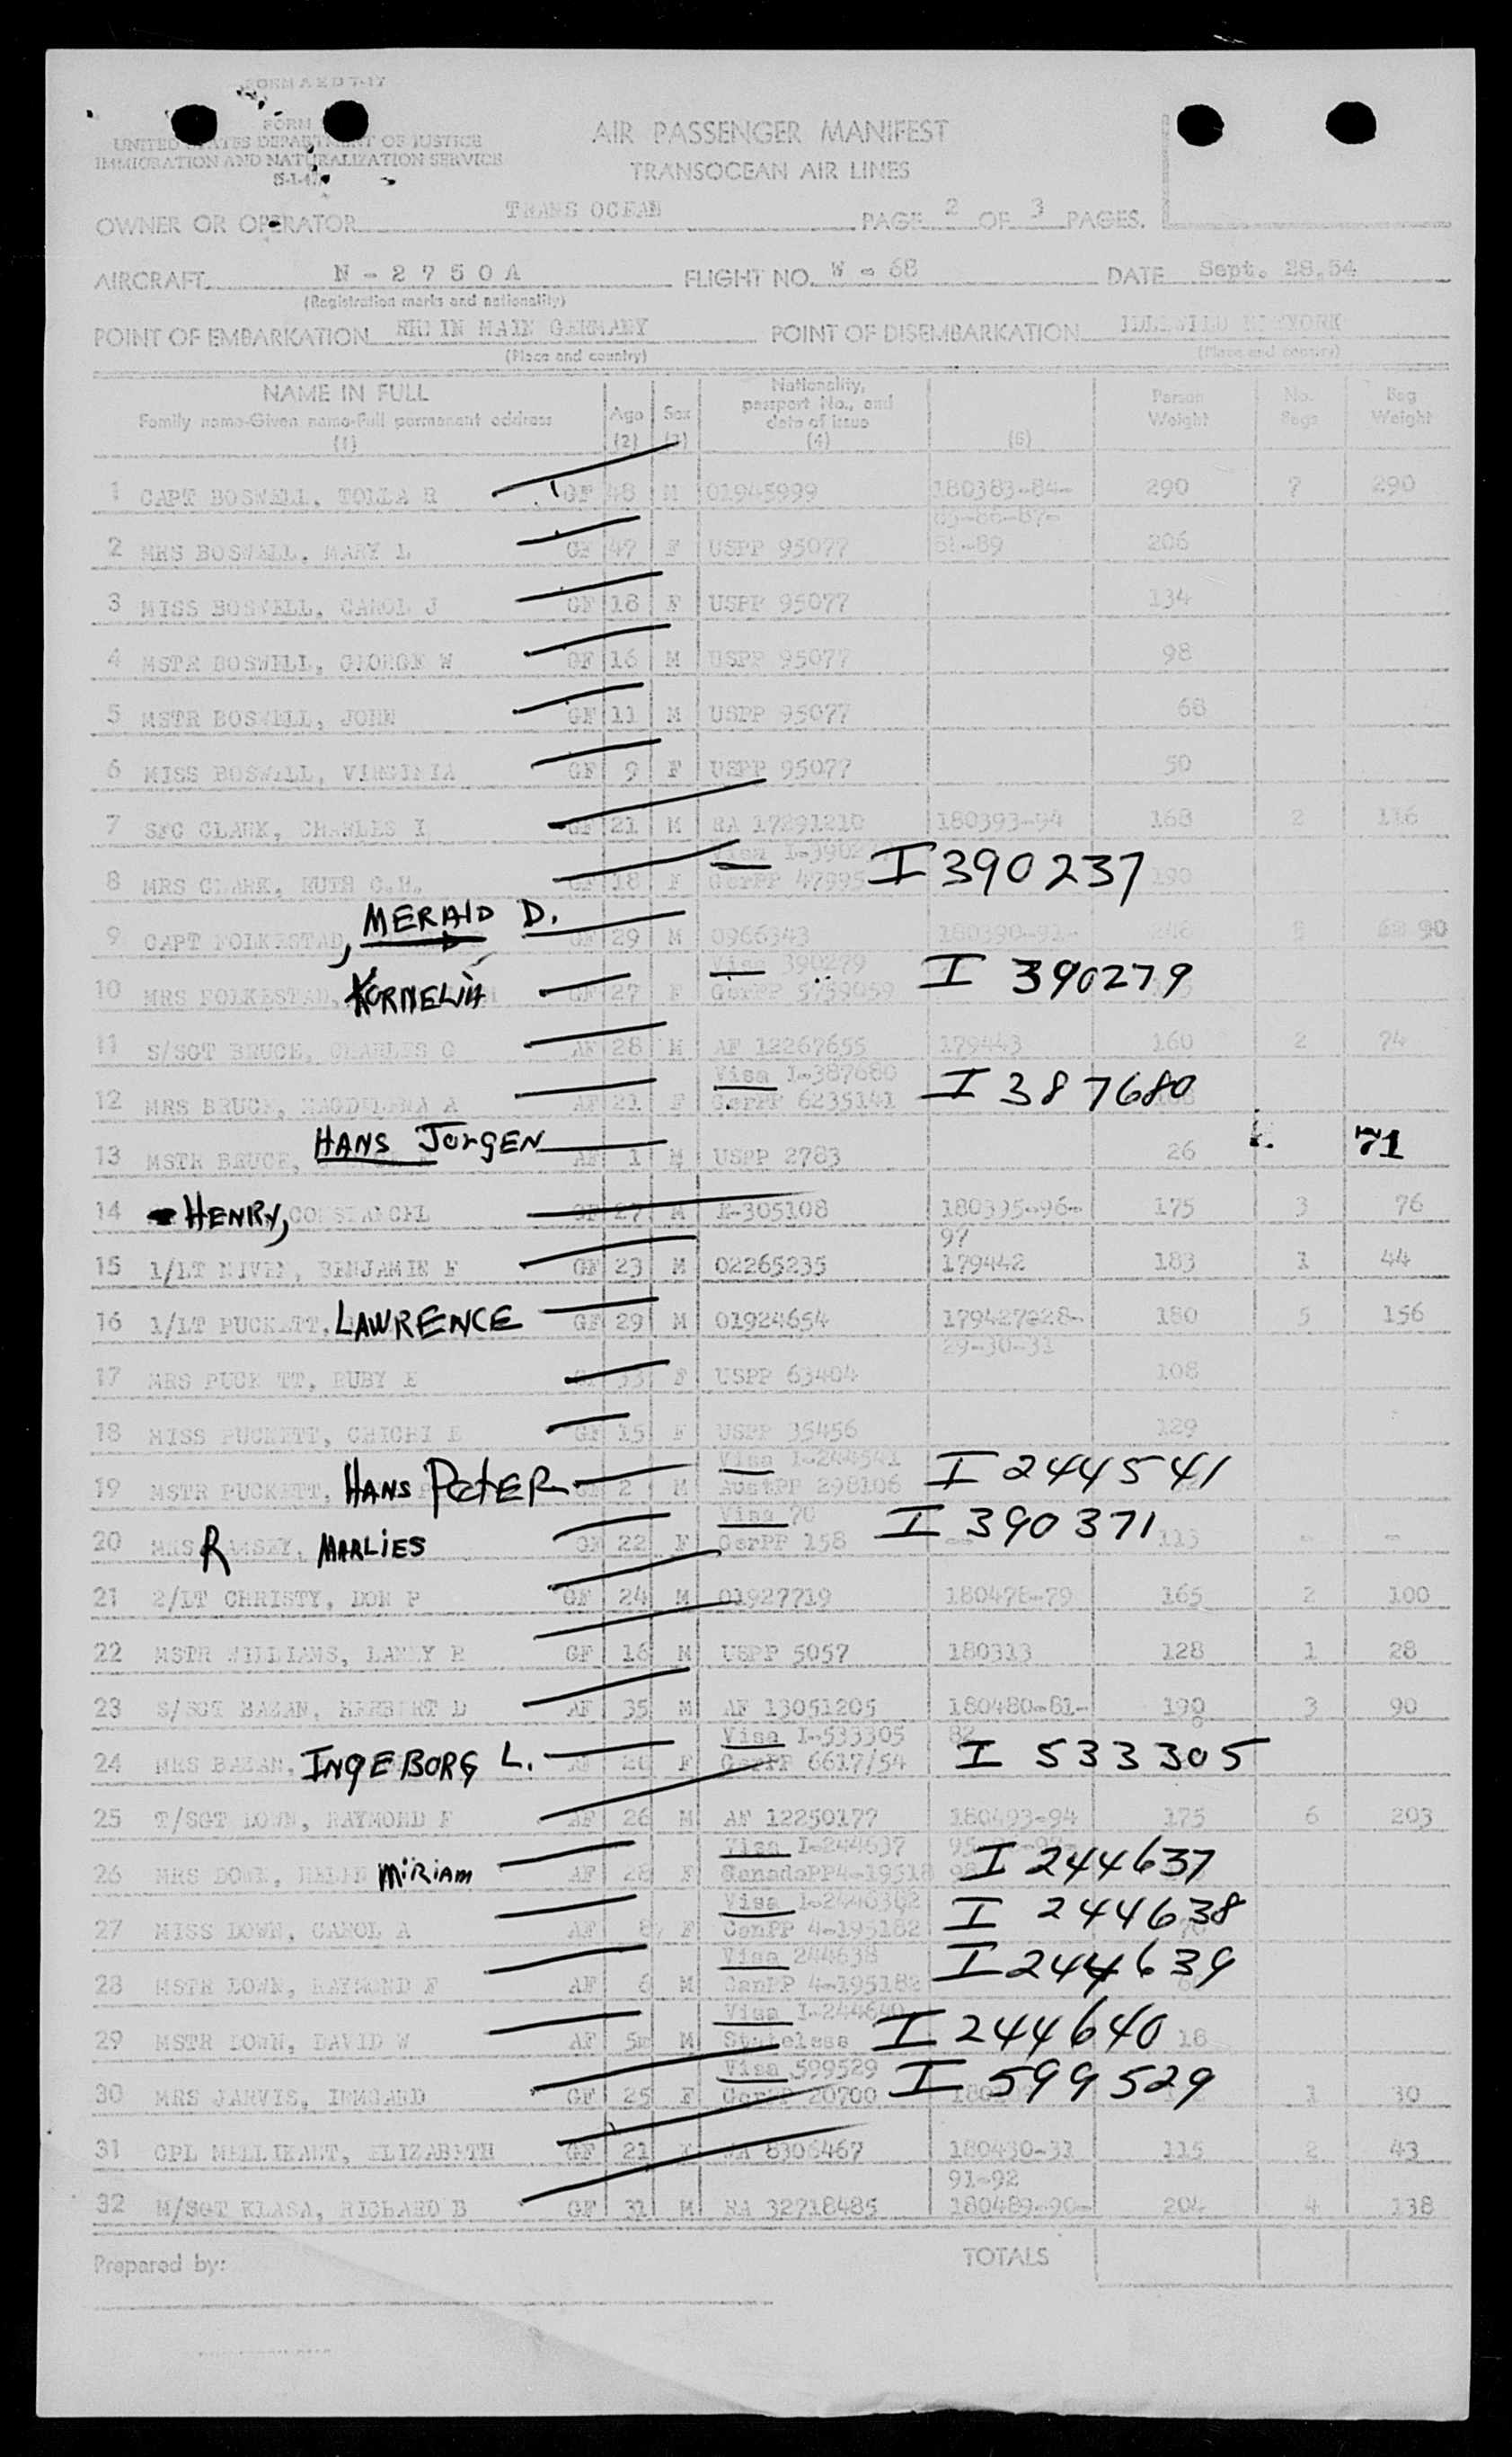 FORM A E D 7-17
FORM
UNITED STATES DEPARTMENT OF JUSTICE
IMMIGRATION AND NATURALIZATION SERVICE
AIR PASSENGER MANIFEST
TRANSOCEAN AIR LINES
OWNER OR OPERATOR TRANS OCEAN PAGE 2 OF 3 PAGES.
AIRCRAFT N-2750A FLIGHT NO. W-68 DATE Sept. 28.54
(Registration marks and nationality)
POINT OF EMBARKATION RHEIN MAIN GERMANY POINT OF DISEMBARKATION IDLEWILD
(Place and country) (Place and country)
NAME IN FULL Age Sex Nationality, passport No., and date of issue Person Weight No. Bags Bag Weight
Family name-Given name-Full permanent address
(1) (2) (3) (4) (5)
1 CAPT BOSWELL, TOLLA R GF 48 M 01945999 180383-84- 290 7 290
2 MRS BOSWELL, MARY L GF 47 F USPP 95077 206
3 MISS BOSWELL, CAROL J GF 18 F USPP 95077 134
4 MSTR BOSWELL, GEORGE W GF 16 M USPP 95077 98
5 MSTR BOSWELL, JOHN GF 11 M USPP 95077 68
6 MISS BOSWELL, VIRGINIA GF 9 F USPP 95077 50
7 SFC CLARK, CHARLES I GF 21 M RA 17291210 180393-94 168 2 116
8 MRS CLARK, RUTH C.H. GF 18 F GerPP 47995 I 390237 190
9 CAPT FOLKESTAD, MERALD D. GF 29 M 0966343 180390-91- 90
Visa 390279
10 MRS FOLKESTAD, KORNELIA GF 27 F GerPP 5759059 I 390279
11 S/SGT BRUCE, CHARLES G AF 28 M AF 12267655 179443 160 2 74
Visa I-387680
12 MRS BRUCE, MAGDELENA A AF 21 F GerPP 6235141 I 387680
13 MSTR BRUCE, HANS JORGEN AF 1 M USPP 2783 26 71
14 HENRY, GF 27 M E-305108 180395-96- 175 3 76
97
15 1/LT NIVEN, BENJAMIN F GF 23 M 02265235 179442 183 1 44
16 1/LT PUCKETT, LAWRENCE GF 29 M 01924654 179427-28- 180 5 156
29-30-31
17 MRS PUCKETT, RUBY E GF 33 F USPP 63404 108
18 MISS PUCKETT, CHICHI E GF 15 F USPP 35456 129
Visa I-244541
19 MSTR PUCKETT, HANS PETER GF 2 M AustPP 298106 I 244541
Visa 70
20 MRS RAMSEY, MARLIES GF 22 F GerPP 158 I 390371 113
21 2/LT CHRISTY, DON P GF 24 M 01927719 180478-79 165 2 100
22 MSTR WILLIAMS, LANNY R GF 16 M USPP 5057 180313 128 1 28
23 S/SGT BAZAN, HERBERT D AF 35 M AF 13051205 180480-81- 190 3 90
Visa I-533305 82
24 MRS BAZAN, INGEBORG L. AF 26 F GerPP 6617/54 I 533305
25 T/SGT DOWN, RAYMOND F AF 26 M AF 12250177 180493-94 175 6 203
Visa I-244637
26 MRS DOWN, HELEN MIRIAM AF 28 F CanadaPP4-19518 I 244637
27 MISS DOWN, CAROL A AF 8 F CanPP 4-195182 I 244638
Visa 244638
28 MSTR DOWN, RAYMOND F AF 6 M CanPP 4-195182 I 244639
Visa I-244640
29 MSTR DOWN, DAVID W AF 5m M Stateless I 244640 18
Visa 599529
30 MRS JARVIS, IRMGARD GF 25 F GerPP 20700 I 599529 1 30
31 CPL MELLIKANT, ELIZABETH GF 21 F WA 8306467 180430-31 115 2 43
91-92
32 M/SGT KLASA, RICHARD B GF 31 M RA 32718485 180489-90- 204 4 138
Prepared by: TOTALS